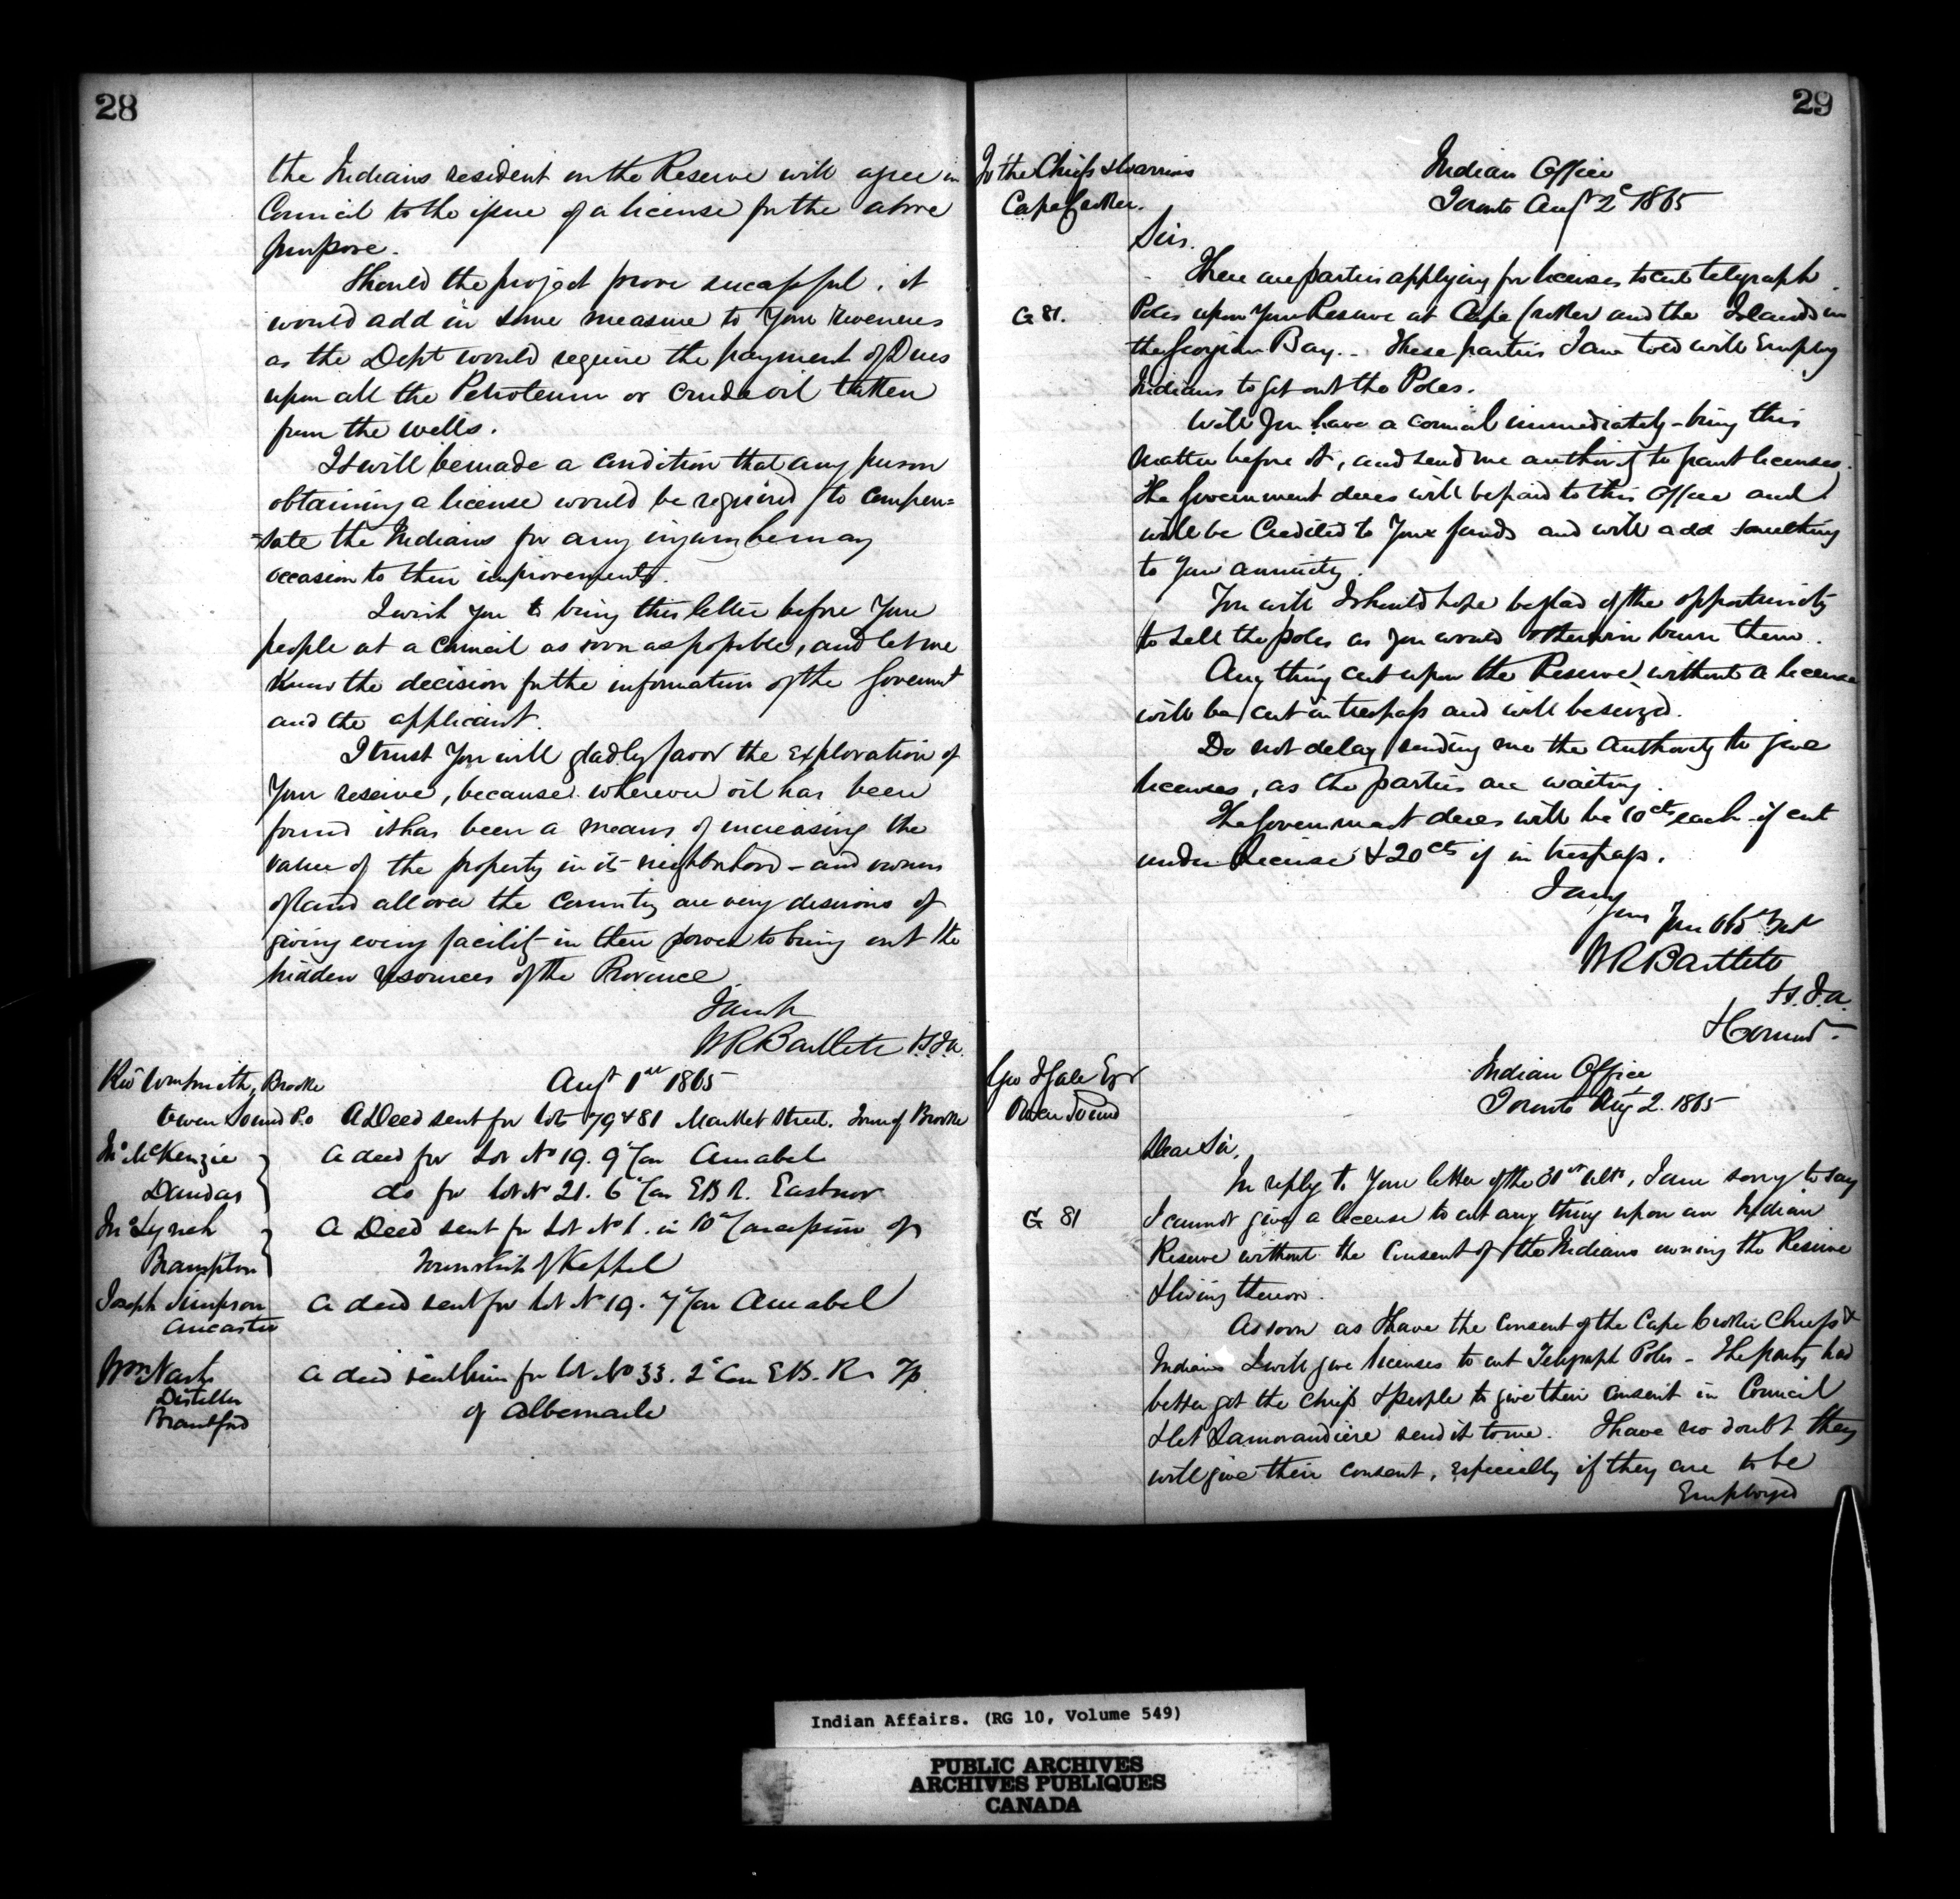 28
the Indians resident on the Reserve will agree in
Council to the issue of a license for the above
purpose.
Should the project prove successful, it
would add in some measure to your revenues
as the Dept would require the payment of Dues
upon all the Petroleum or crude oil taken
from the wells.
It will be made a condition that any person
obtaining a license would be required to compen=
=sate the Indians for any injury he may
occasion to their improvements.
I wish you to bring this letter before your
people at a Council as soon as possible, and let me
know the decision for the information of the Governmt
and the applicant.
I trust you will gladly favor the exploration of
your reserve, because wherever oil has been
found it has been a means of increasing the
value of the property in its neighborhood - and owners
of land all over the Country are very desirous of
giving every facility in their power to bring out the
hidden resources of the Province
I am &c
W R Bartlett V.S.I.A.
Augt 1st 1865
Revd Wm Smith, Brooke
Owen Sound P.O A Deed sent for lots 79 & 81 Market Street. Town of Brooke
Jno McKenzie A deed for Lot No 19. 9 Con Amabel
Dundas do for lot No 21. 6 Con E B R. Eastnor
Jno Lynch A Deed sent for Lot No 1. in 10 Concession of
Brampton Township of Keppel
Joseph Simpson A deed sent for lot No 19. 7 Con Amabel
Ancaster
Wm Nash A deed sent him for lot No 33. 2d Con E.B.R. Tp
Distiller
of Albemarle
Brantford
29
To the Chiefs & Warriors
Cape Croker.
Indian Office
Toronto Augt 2d 1865
Sirs.
There are parties applying for licenses to cut telegraph
G 81.
Poles upon your Reserve at Cape Croker and the Islands in
the Georgian Bay. These parties I am told will Employ
Indians to get out the Poles.
Will you have a council immediately - bring this
matter before it, and send me authority to grant licenses.
The Government dues will be paid to this Office and
will be Credited to your funds and will add something
to your annuity.
You will I should hope be glad of the opportunity
to sell the poles as you would otherwise burn them.
Any thing cut upon the Reserve without a license
will be cut in trespass and will be seized.
Do not delay sending me the authority to give
licenses, as the parties are waiting.
The Government dues will be 10cts each if cut
under license & 20cts if in trespass.
I am
Your Obdt Svt
W R Bartlett
V.S.I.A.
& Commr
Geo J Gale Esqr
Owen Sound
Indian Office
Toronto Augt 2. 1865
Dear Sir,
In reply to your letter of the 31st ulto, I am sorry to say
G 81
I cannot give a license to cut any thing upon an Indian
Reserve without the consent of the Indians owning the Reserve
& living thereon.
As soon as I have the consent of the Cape Croker Chiefs &
Indians I will give licenses to cut Telegraph Poles - The party had
better get the chiefs & people to give their consent in Council
& let Lamorandiere send it to me. I have no doubt they
will give their consent, especially if they are to be
Employed
Indian Affairs. (RG 10, Volume 549)
PUBLIC ARCHIVES
ARCHIVES PUBLIQUES
CANADA